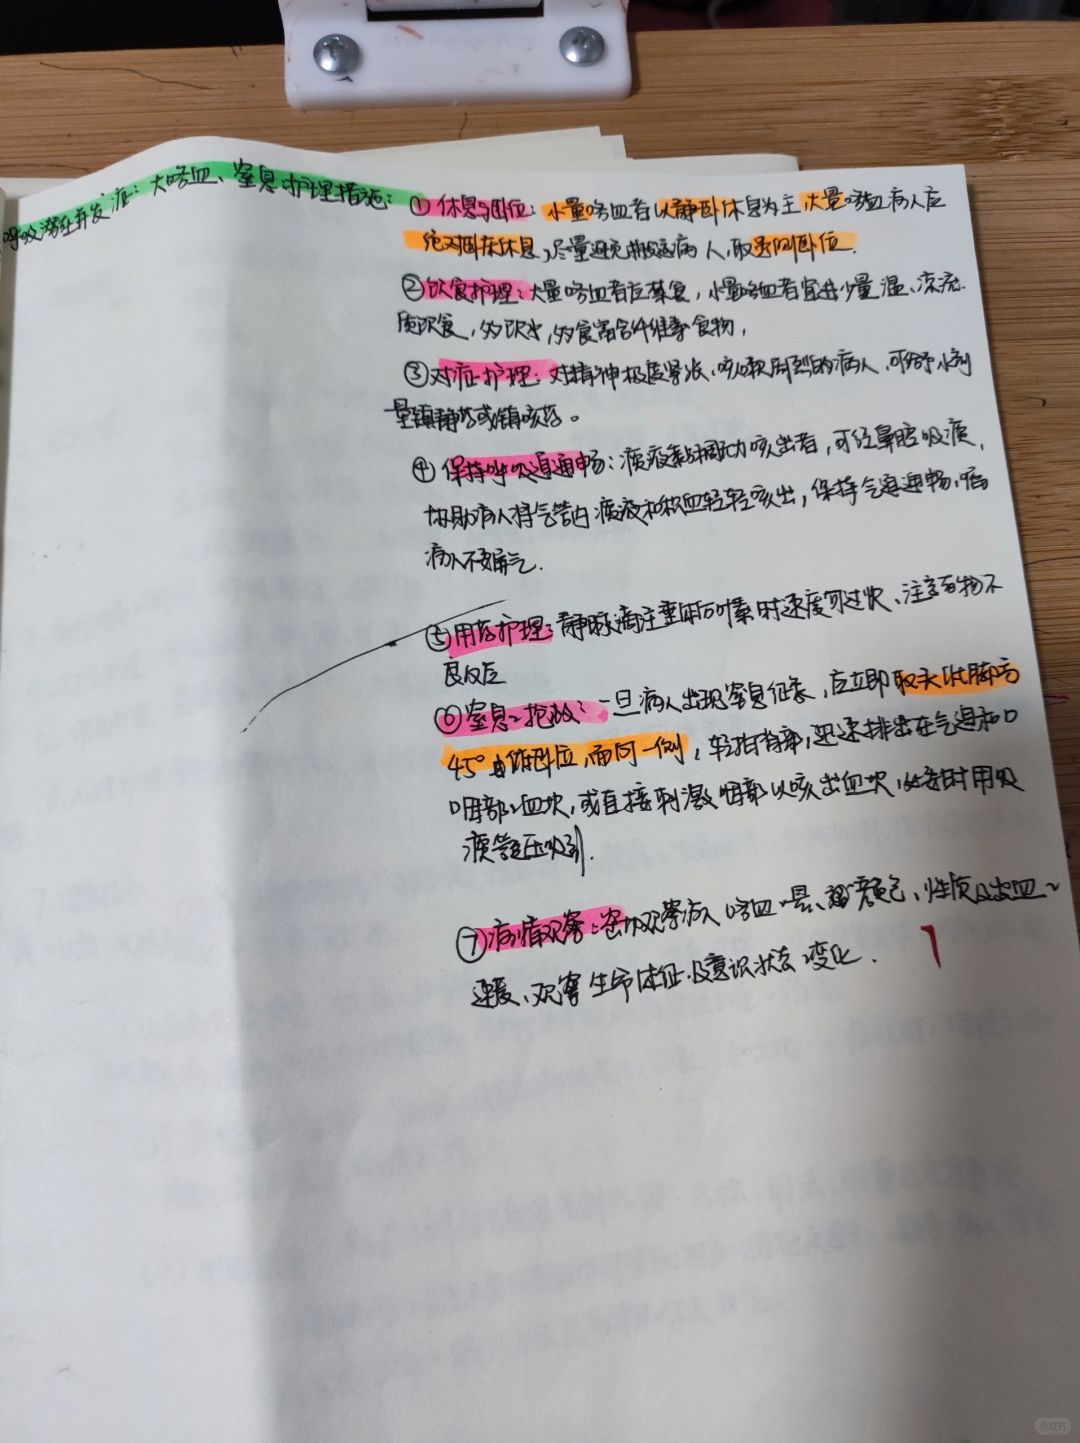 呼吸潜在并发症:大咯血、窒息护理措施:
①休息与卧位:小量咯血者以静卧休息为主,大量咯血病人应
绝对卧床休息,尽量避免搬运病人,取患侧卧位.
②饮食护理:大量咯血者应禁食,小量咯血者宜进少量温、凉流
质饮食,多饮水,多食富含纤维素食物,
③对症护理:对精神极度紧张、咳嗽剧烈的病人,可给予小剂
量镇静药或镇咳药。
④保持呼吸道通畅:痰液黏稠无力咳出者,可经鼻腔吸痰,
协助病人将气管内痰液和积血轻轻咳出,保持气道通畅,嘱
病人不要屏气.
⑤用药护理:静脉滴注垂体后叶素时速度勿过快、注意药物不
良反应
⑥窒息抢救:一旦病人出现窒息征象,应立即取头低脚高
45°俯卧位,面向一侧,轻拍背部,迅速排出在气道和口
咽部血块,或直接刺激咽部以咳出血块,必要时用吸
痰管负压吸引.
⑦病情观察:密切观察病人咯血量、颜色、性质及出血
速度、观察生命体征及意识状态变化.
小红书